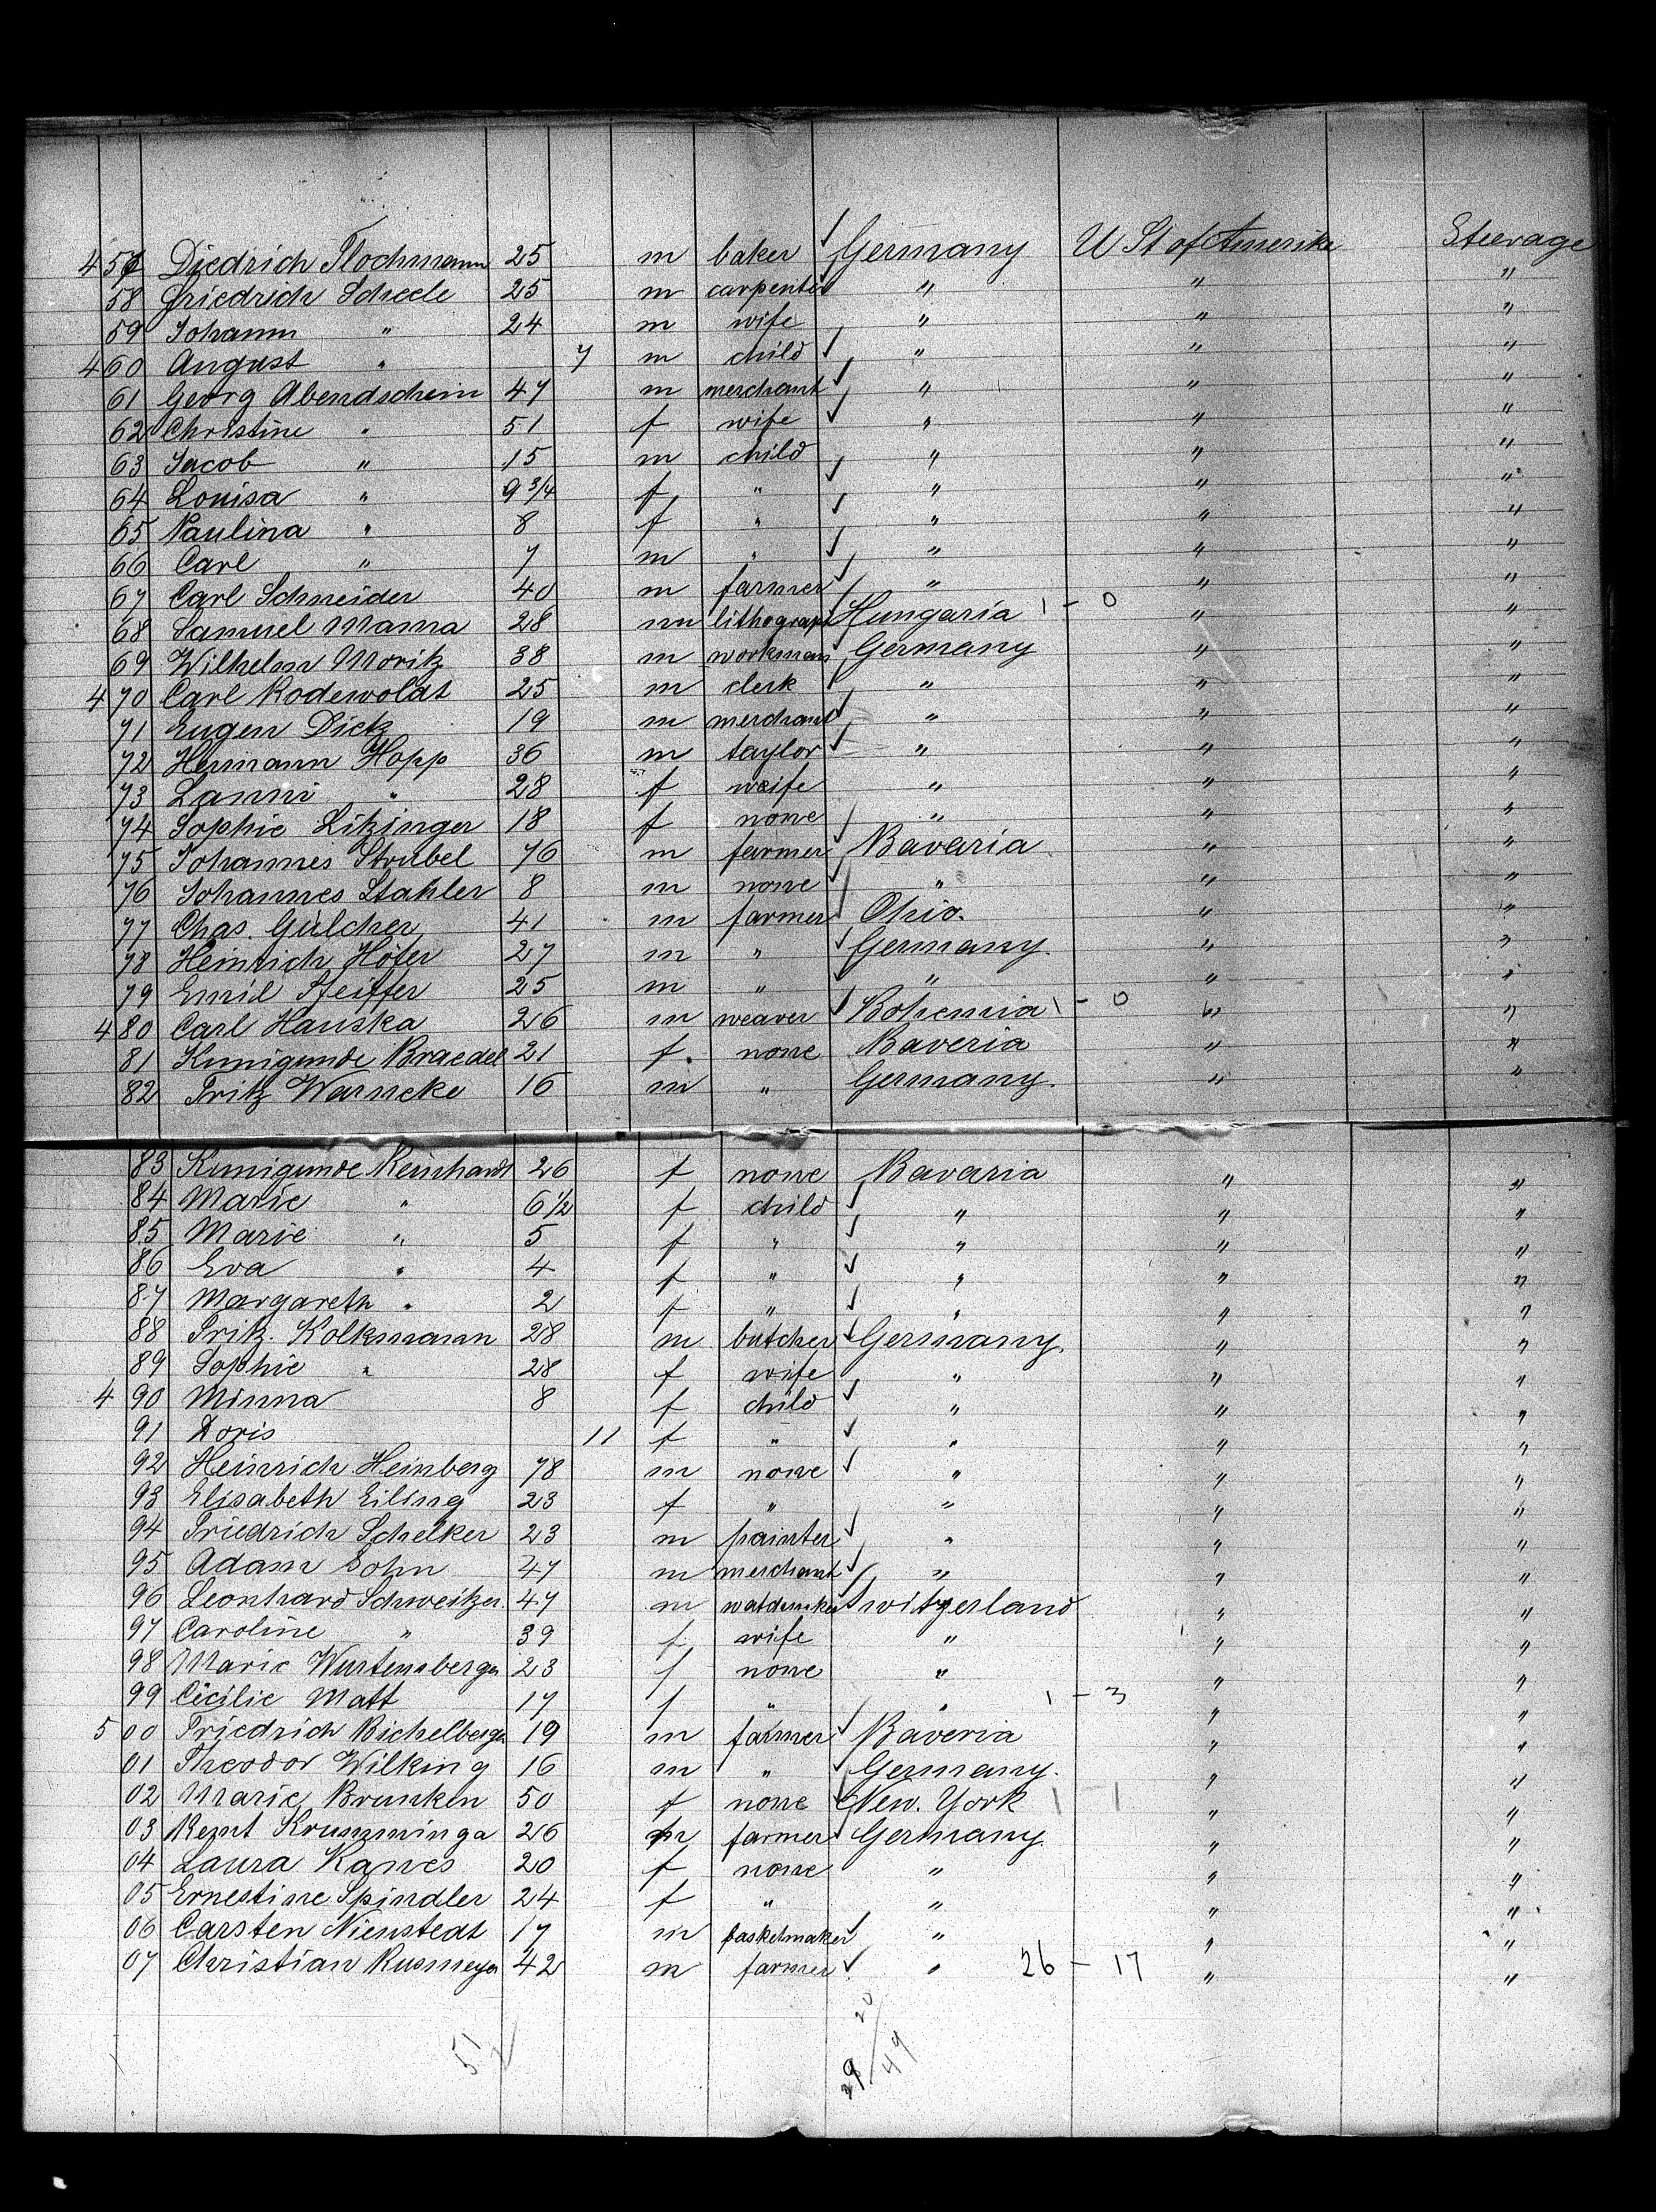 457 Diedrich Flochmann 25 m baker Germany U St of Amerika Steerage
58 Friedrich Scheele 25 m carpenter " " "
59 Johann " 24 m wife " " "
460 August " 7 m child " " "
61 Georg Abendschein 47 m merchant " " "
62 Christine " 51 f wife " " "
63 Jacob " 15 m child " " "
64 Louisa " 9 3/4 f " " " "
65 Paulina " 8 f " " " "
66 Carl " 7 m " " " "
67 Carl Schneider 40 m farmer " " "
68 Samuel Mama 28 m lithograph Hungaria 1 - 0 " "
69 Wilhelm Moritz 38 m workman Germany " "
470 Carl Rodewoldt 25 m clerk " " "
71 Eugen Dietz 19 m merchant " " "
72 Hermann Hopp 36 m taylor " " "
73 Lanni " 28 f weife " " "
74 Sophie Litzinger 18 f none " " "
75 Johannes Strubel 76 m farmer Bavaria " "
76 Johannes Stahler 8 m none " " "
77 Chas. Gülcher 41 m farmer Ohio. " "
78 Heinrich Höfer 27 m " Germany. " "
79 Emil Pfeiffer 25 m " " " "
480 Carl Hauska 26 m weaver Bohemia 1 - 0 " "
81 Kunigunde Braedel 21 f. none Baveria " "
82 Fritz Warncke 16 m " Germany. " "
83 Kunigunde Reinhardt 26 f none Bavaria " "
84 Marie " 6 1/2 f child " " "
85 Marie " 5 f " " " "
86 Eva " 4 f " " " "
87 Margareth " 2 f " " " "
88 Fritz. Kolkmann 28 m butcher Germany. " "
89 Sophie " 28 f wife " " "
490 Minna 8 f child " " "
91 Doris 11 f " " " "
92 Heinrich Heinberg 78 m none " " "
93 Elisabeth Eiling 23 f " " " "
94 Friedrich Schelker 23 m painter " " "
95 Adam Sohn 47 m merchant " " "
96 Leonhard Schweitzer 47 m Switzerland " "
97 Caroline " 39 f wife " " "
98 Marie Wurtemberger 23 f none " " "
99 Cicilie Matt 17 f " " 1 - 3 " "
500 Friedrich Bichelberger 19 m farmer Baveria " "
01 Theodor Wilking 16 m " Germany. " "
02 Marie Brunken 50 f none New. York 1 1 " "
03 Remt Krumminga 26 m farmer Germany. " "
04 Laura Kanes 20 f none " " "
05 Ernestine Spindler 24 f " " " "
06 Carsten Nienstedt 17 m basketmaker " " "
07 Christian Rusmeyer 42 m farmer " 26 - 17 " "
51
20
29/49